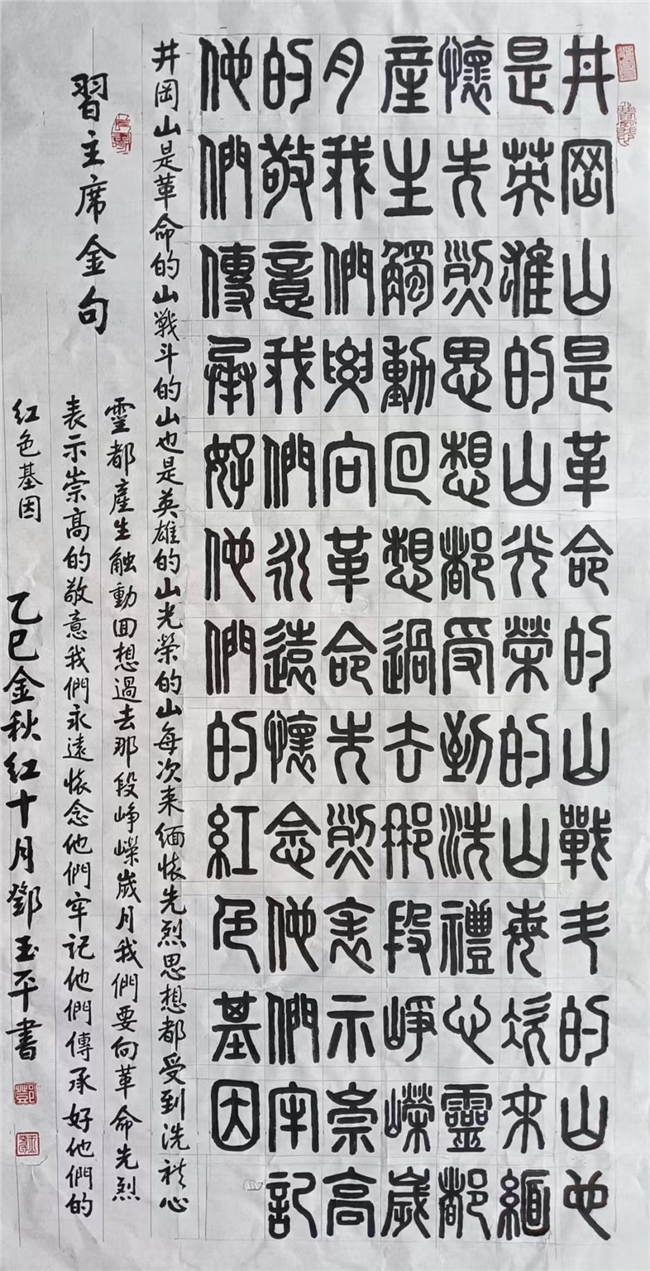 井岡山是革命的山戰斗的山也
是英雄的山光榮的山每次來緬
懷先烈思想都受到洗禮心靈都
產生觸動回想過去那段崢嶸歲
月我們要向革命先烈表示崇高
的敬意我們永遠懷念他們牢記
他們傳承好他們的紅色基因
井岡山是革命的山戰斗的山也是英雄的山光榮的山每次来緬怀先烈思想都受到洗礼心
靈都產生触動回想過去那段崢嶸歲月我們要向革命先烈
表示崇高的敬意我們永遠怀念他們牢記他們傳承好他們的
红色基因
習主席金句
乙巳金秋红十月鄧玉平書